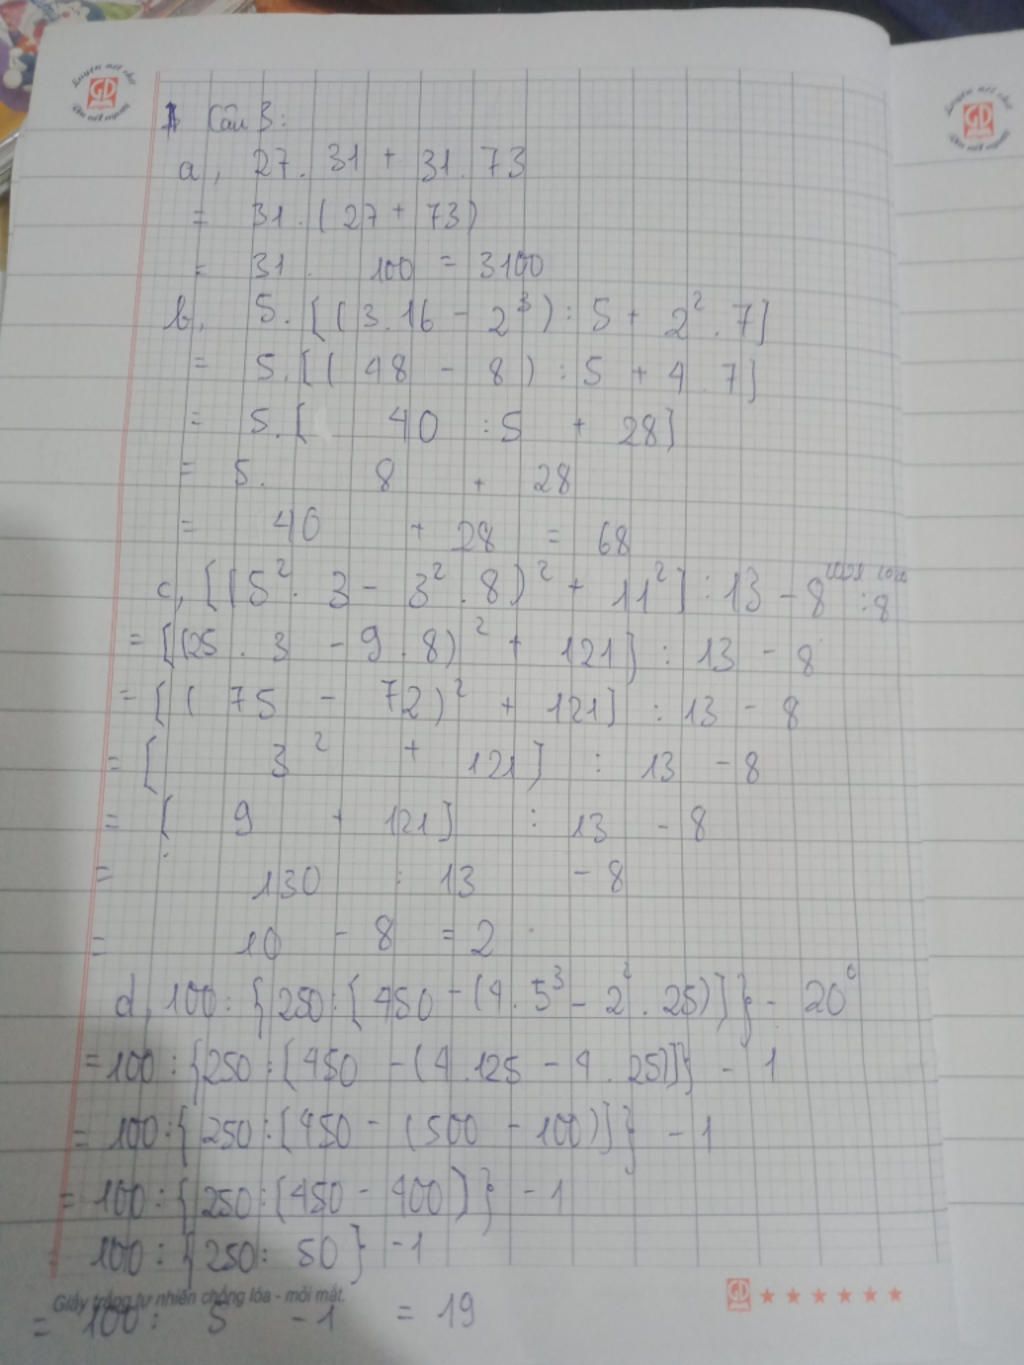 Luyện nét chữ
GD
Rèn nết người
GD
Câu 3:
a, 27. 31 + 31. 73
= 31 . ( 27 + 73)
= 31 . 100 = 3100
b, 5. [( 3.16 - 2³) : 5 + 2² . 7]
= 5.[( 48 - 8) : 5 + 4 . 7]
= 5. [ 40 : 5 + 28]
= 5. 8 + 28
= 40 + 28 = 68
c, [(5² . 3 - 3² . 8)² + 11²] : 13 - 8 : 8
= [(25 . 3 - 9 . 8)² + 121] : 13 - 8
= [( 75 - 72)² + 121] : 13 - 8
= [ 3² + 121] : 13 - 8
= [ 9 + 121] : 13 - 8
= 130 : 13 - 8
= 10 - 8 = 2
d, 100 : {250 : [450 - (4 . 5³ - 2² . 25)]} - 20⁰
= 100 : {250 : [450 - (4 . 125 - 4 . 25)]} - 1
= 100 : {250 : [450 - (500 - 100)]} - 1
= 100 : {250 : (450 - 400)} - 1
100 : {250 : 50} - 1
Giấy trắng tự nhiên chống lóa - mỏi mắt.
GD
= 100 : 5 - 1 = 19